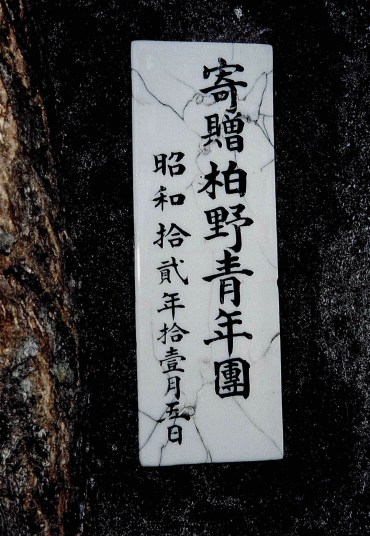 寄贈柏野青年團
昭和拾貳年拾壹月五日